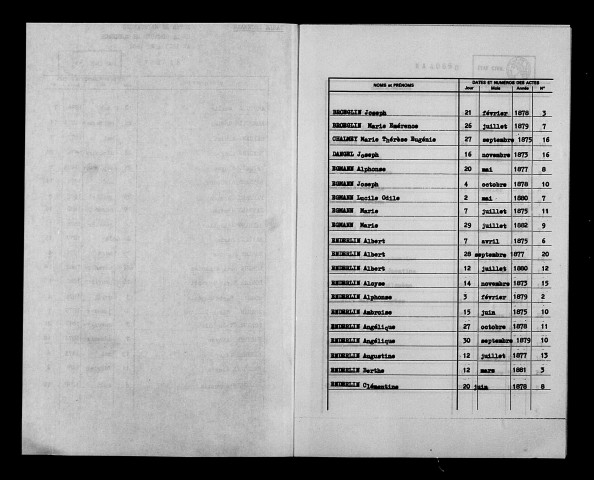 NOMS et PRÉNOMS DATES ET NUMÉROS DES ACTES
Jour Mois Année N°
BRONGLIN Joseph 21 février 1878 3
BRONGLIN Marie Emérence 26 juillet 1879 7
CHALMEY Marie Thérèse Eugénie 27 septembre 1875 16
DANGEL Joseph 16 novembre 1873 16
EGMANN Alphonse 20 mai 1877 8
EGMANN Joseph 4 octobre 1878 10
EGMANN Lucile Odile 2 mai 1880 7
EGMANN Marie 7 juillet 1875 11
EGMANN Marie 29 juillet 1882 9
ENDERLIN Albert 7 avril 1875 6
ENDERLIN Albert 28 septembre 1877 20
ENDERLIN Albert 12 juillet 1880 12
ENDERLIN Aloyse 14 novembre 1873 15
ENDERLIN Alphonse 3 février 1879 2
ENDERLIN Ambroise 15 juin 1875 10
ENDERLIN Angélique 27 octobre 1878 11
ENDERLIN Angélique 30 septembre 1879 10
ENDERLIN Augustine 12 juillet 1877 13
ENDERLIN Berthe 12 mars 1881 3
ENDERLIN Clémentine 20 juin 1878 8